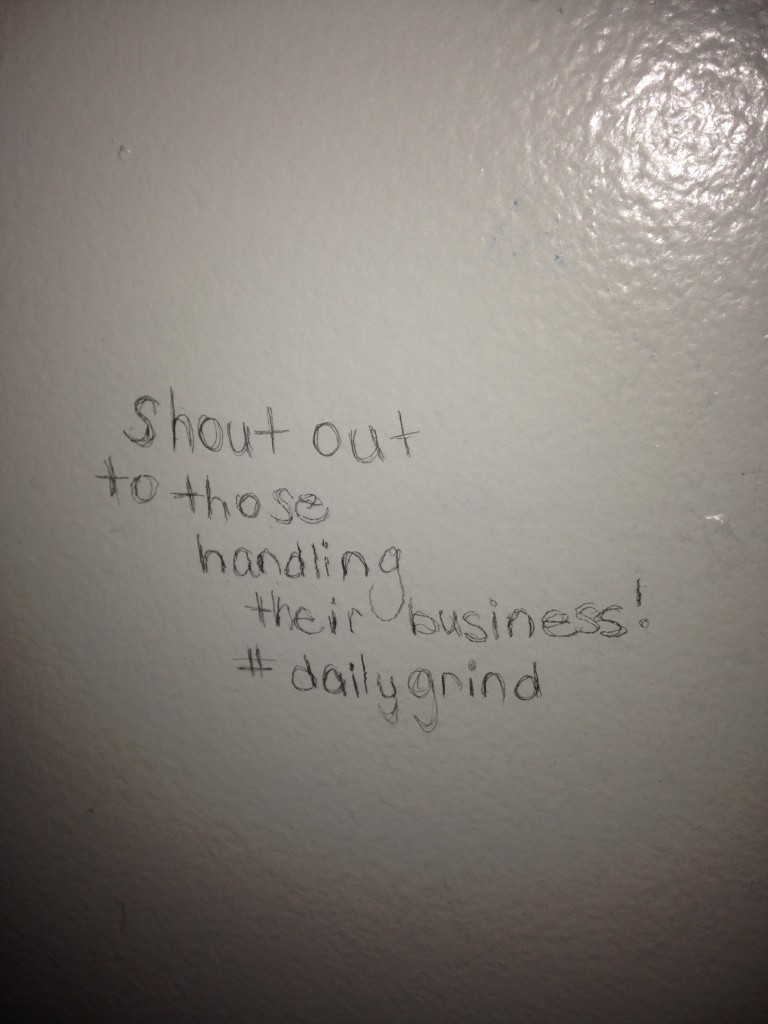 Shout out
to those
handling
their business!
# dailygrind